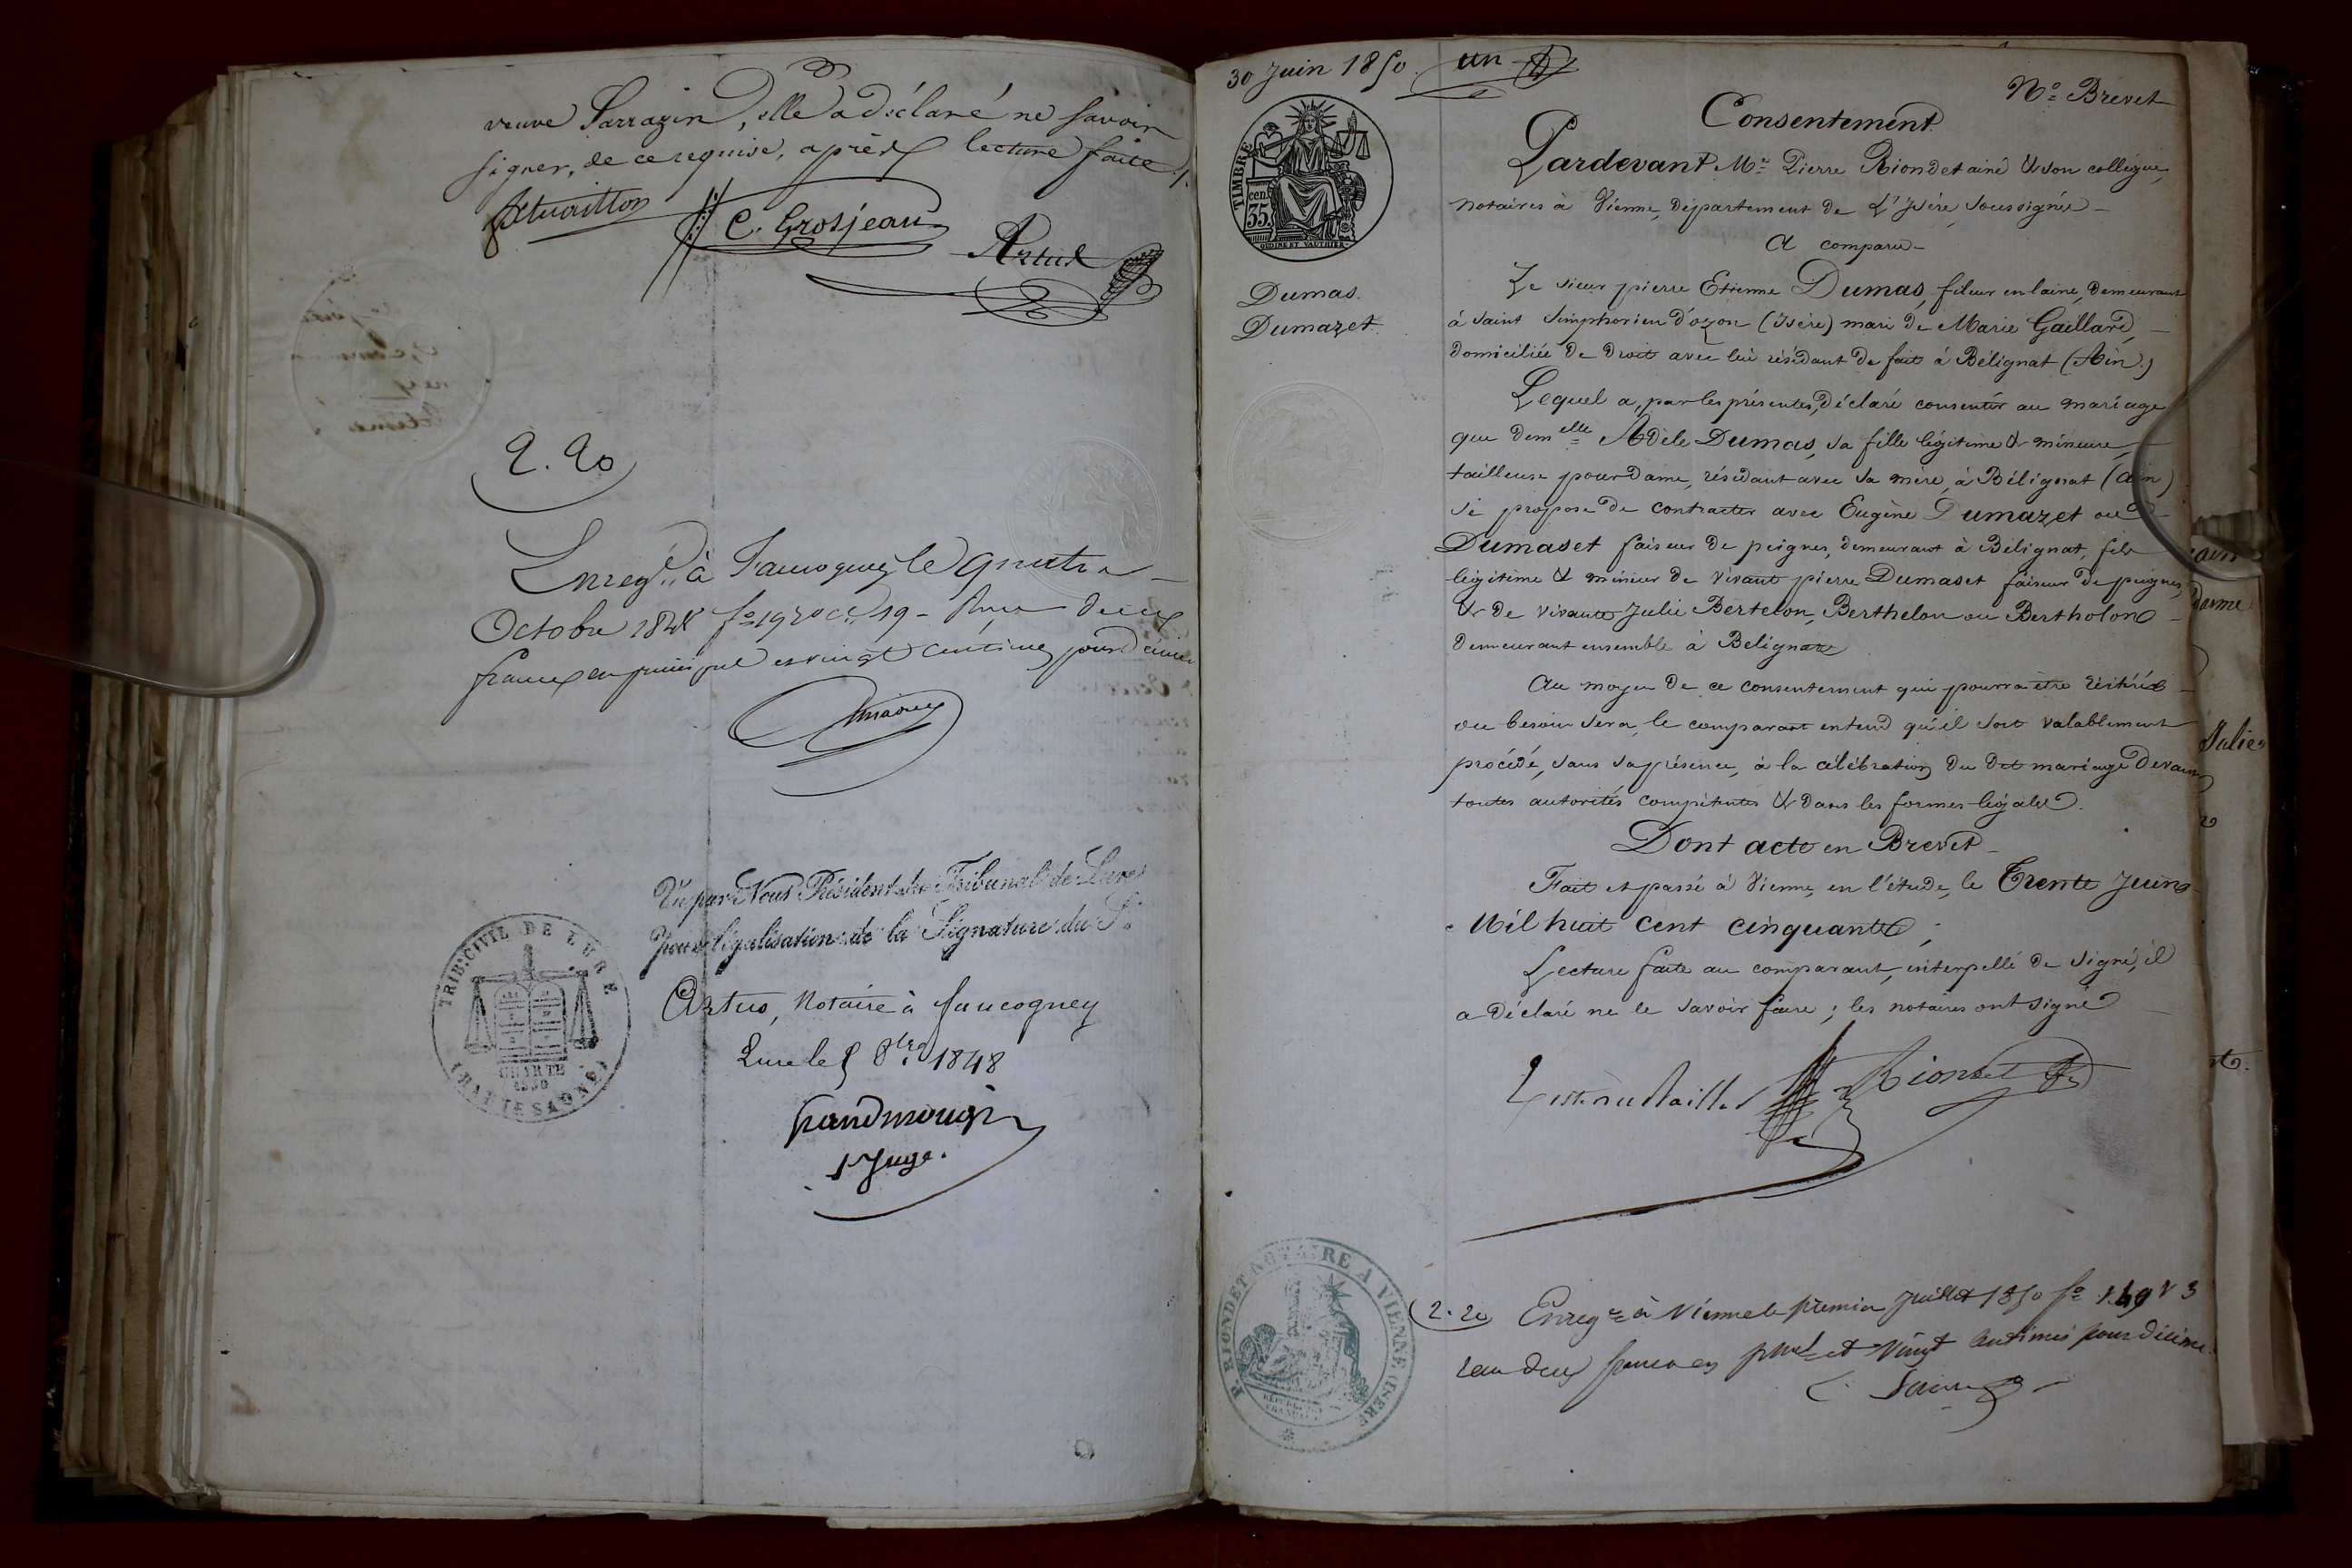 veuve Sarrazin, elle a déclaré ne savoir
signer, de ce requise, après lecture faite ./.
C. Grosjean
Artus
2.20
Enreg.^é à Faucogney le quatre
Octobre 1848 f° 19 v° c. 19 - Reçu deux
francs en principal et vingt centimes pour décime
Vu par Nous Président du Tribunal de Lure
pour légalisation de la Signature du S.^r
Artus, Notaire à faucogney
Lure le 5 8^bre 1848
Grandmougin
s^t Juge.
TRIB. CIVIL DE LURE
CHARTE
1830
(HAUTE SAONE)
30 Juin 1850
un
TIMBRE
cen.
35
OUDINE ET VAUTHIER
N.° Brevet
Consentement
Dumas
Dumazet
Pardevant M.^e Pierre Riondet ainé & son collègue,
notaires à Vienne, département de L'Isère, soussignés -
A comparu -
Le sieur pierre Etienne Dumas, fileur en laine, demeurant
à saint Simphorien d'ozon (Isère) mari de Marie Gaillard,
domiciliée de droit avec lui résidant de fait à Bélignat (Ain)
Lequel a, par les présentes, déclaré consentir au mariage
que dem^elle Adèle Dumas, sa fille légitime & mineure,
tailleuse pour Dame, résidant avec sa mère, à Bélignat (ain)
se propose de contracter avec Eugène Dumazet ou
Dumaset faiseur de peignes, demeurant à Bélignat, fils
légitime & mineur de vivant pierre Dumaset faiseur de peignes,
& de vivante Julie Bertelon, Berthelon ou Bertholon
demeurant ensemble à Belignat
Au moyen de ce consentement qui pourra être réitéré
où besoin sera, le comparant entend qu'il soit valablement
procédé, sans sa présence, à la célébration du dit mariage devant
toutes autorités compétentes & dans les formes légales.
Dont acte en Brevet
Fait et passé à Vienne, en l'étude, le Trente Juin
Mil huit cent cinquante ;
Lecture faite au comparant, interpellé de signé, il
a déclaré ne le savoir faire ; les notaires ont signé
Riondet
P. RIONDET NOTAIRE A VIENNE (ISERE)
2.20
Enreg.^é à Vienne le premier Juillet 1850 f° 149 v 3
reçu deux francs en p^pal et vingt centimes pour décime
ain
dame
Julie